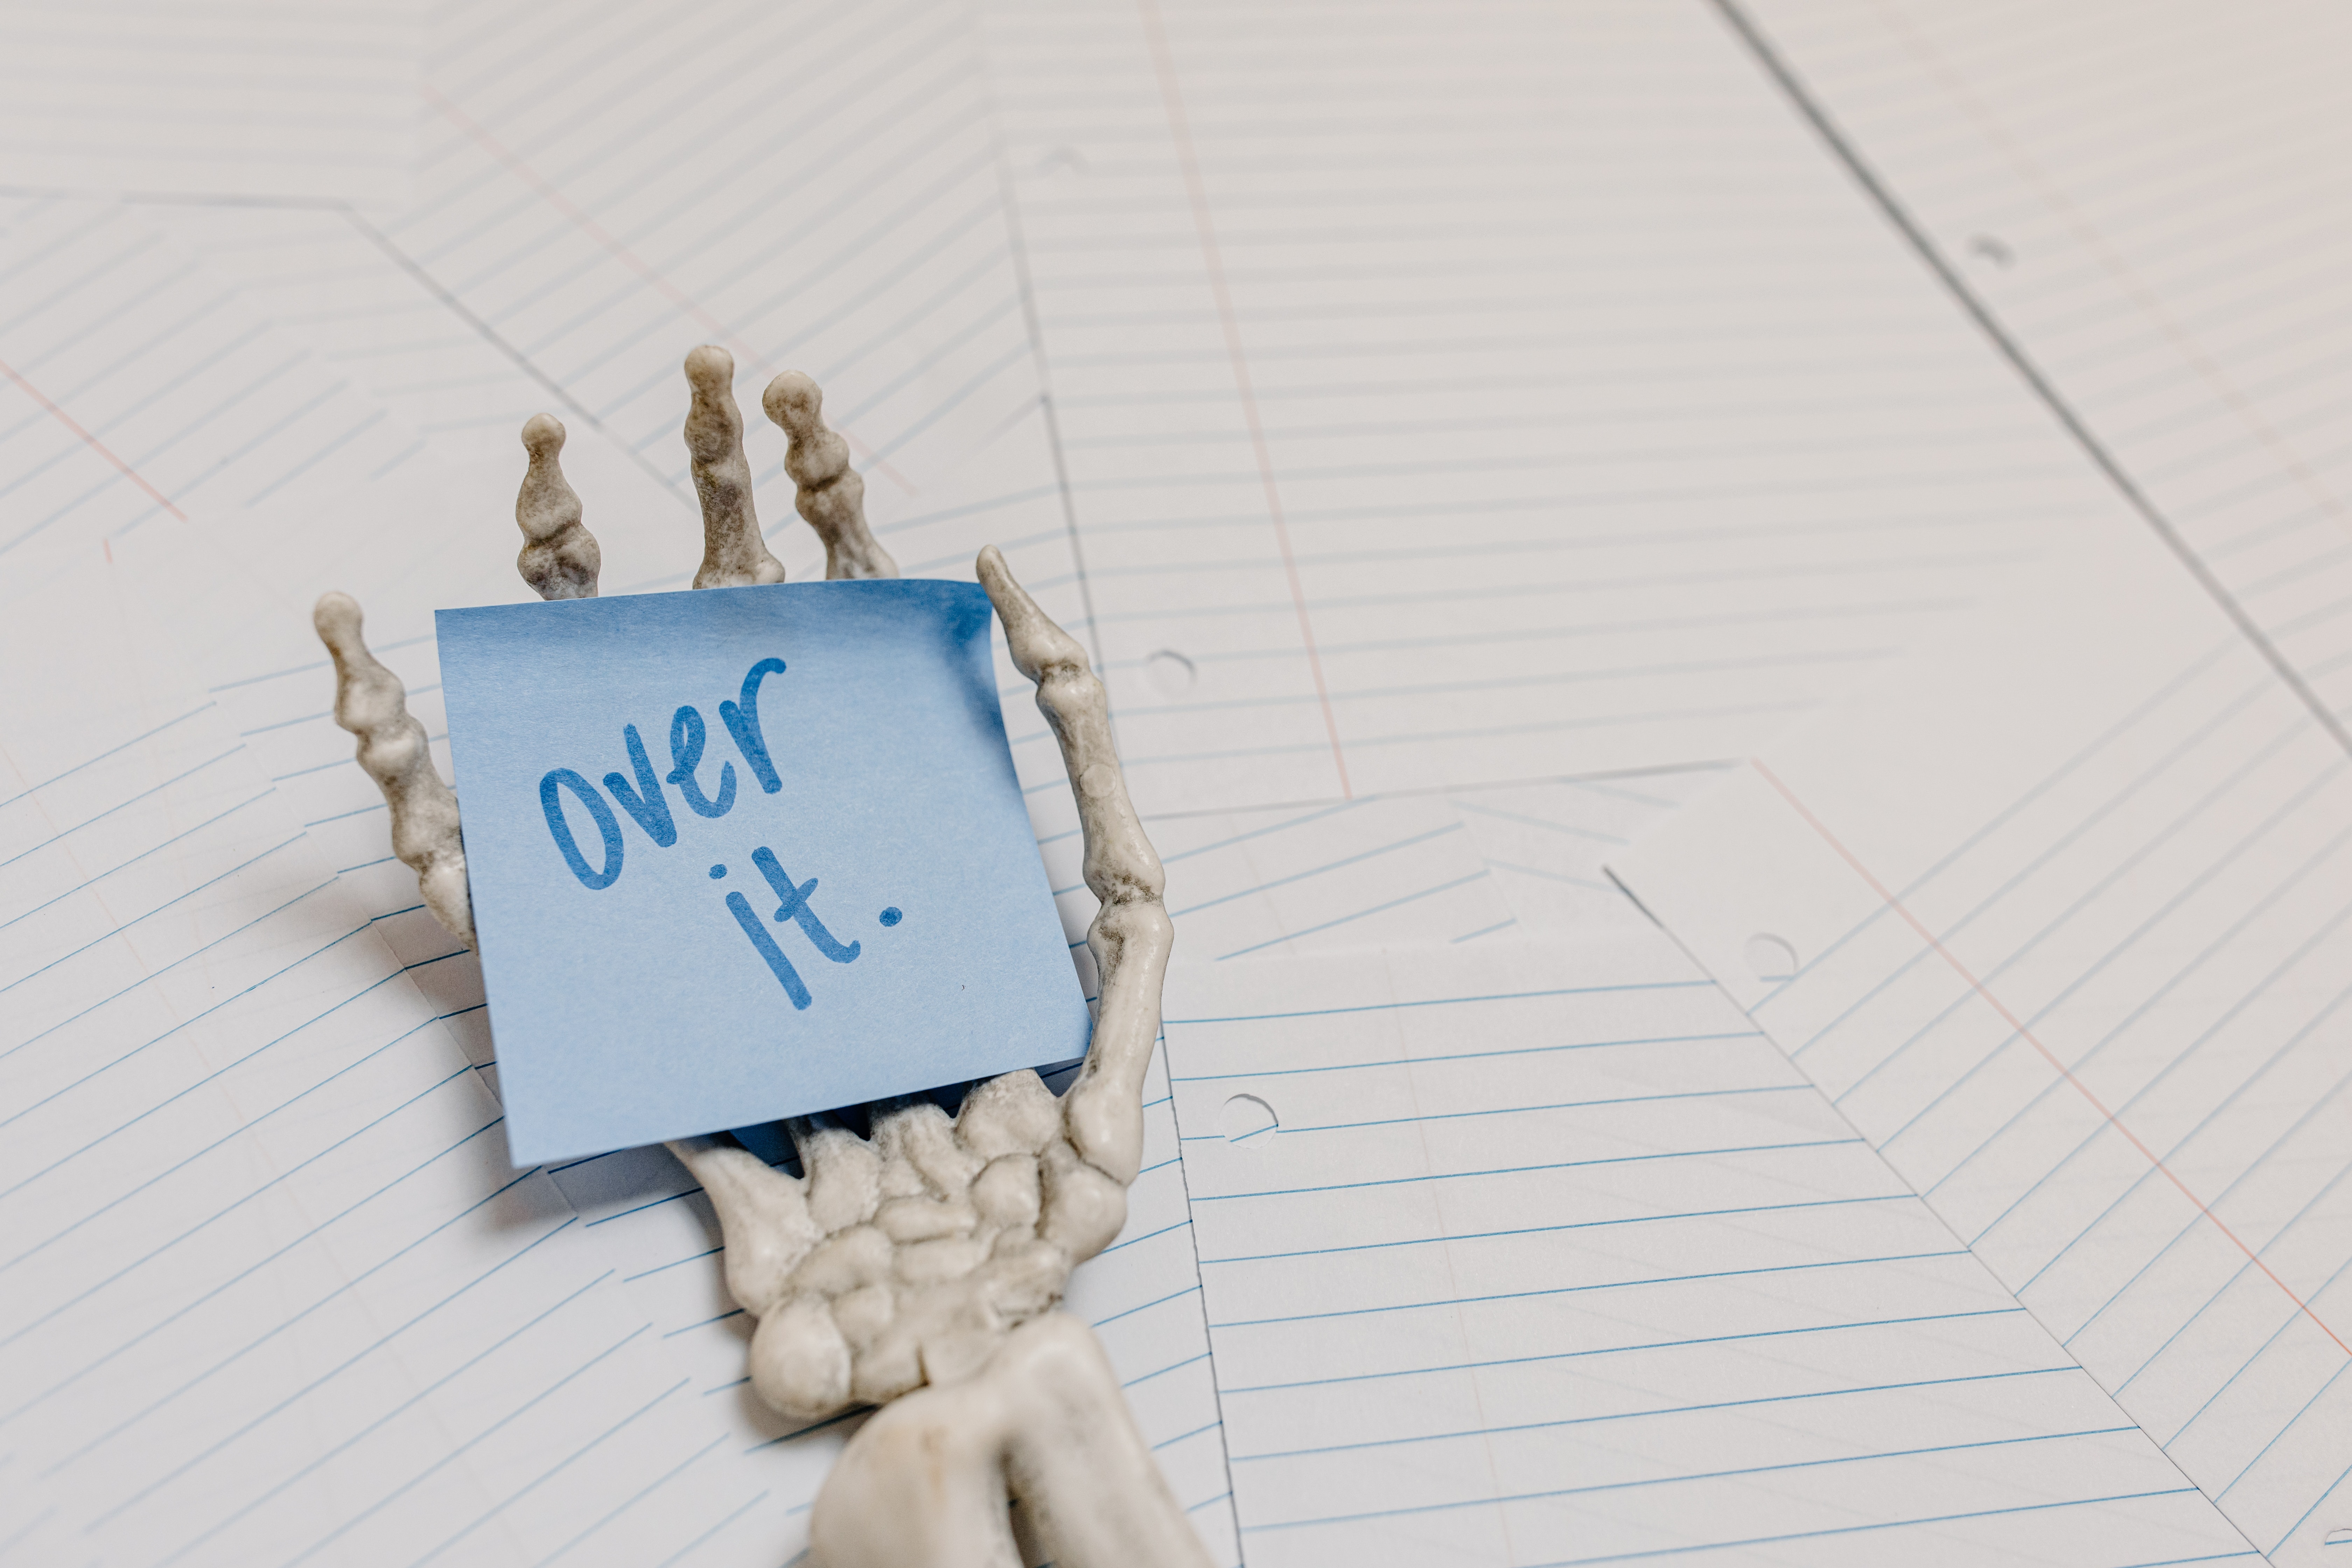 Over
it.